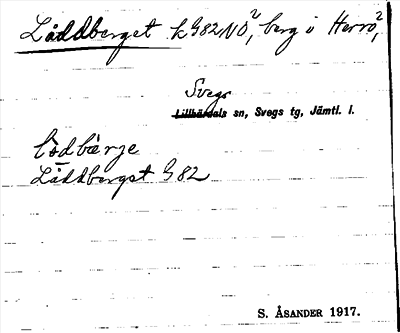 Låddberget k G82NÖ², berg i Herrö²,
Svegs
Lillhärdals sn, Svegs tg, Jämtl. l.
Lådbärje
Låddberget G82
S. ÅSANDER 1917.